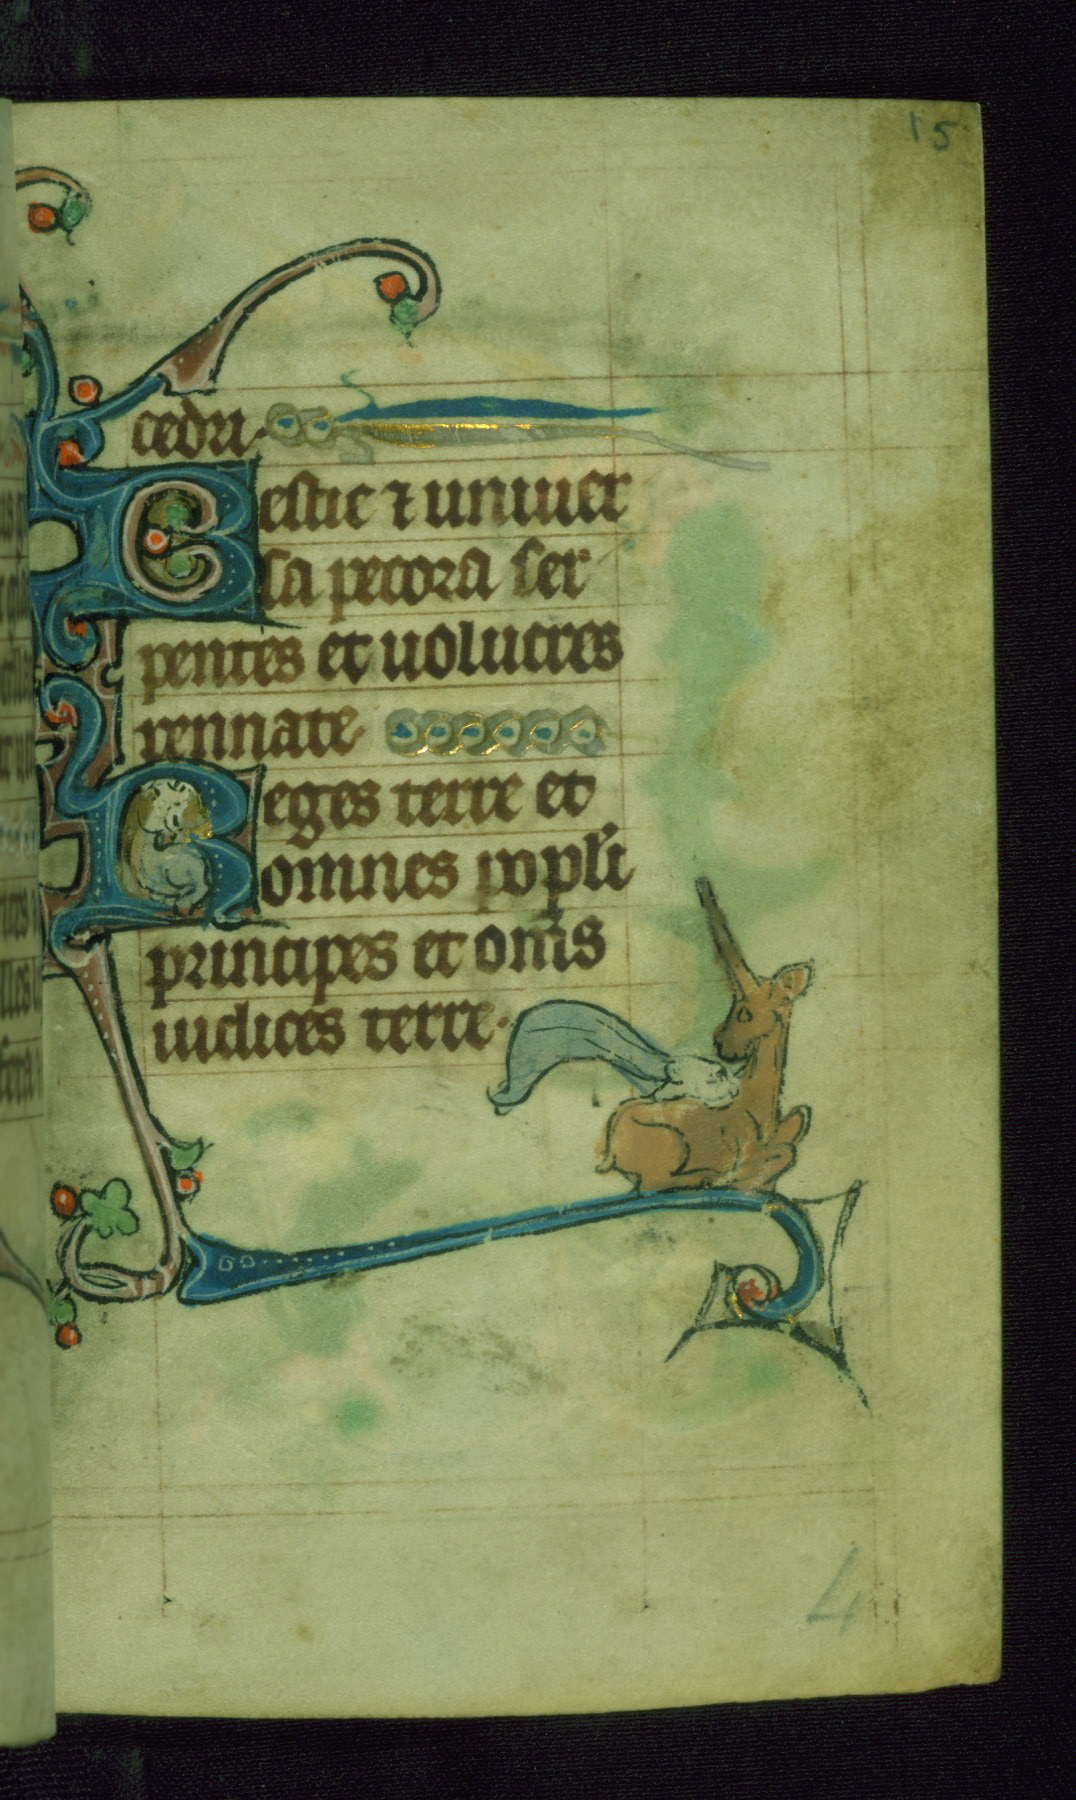 15
cedri.
Bestie ⁊ uniuer
sa pecora ser
pentes et uolucres
pennate
Reges terre et
omnes popłi
principes et om̃s
iudices terre.
4